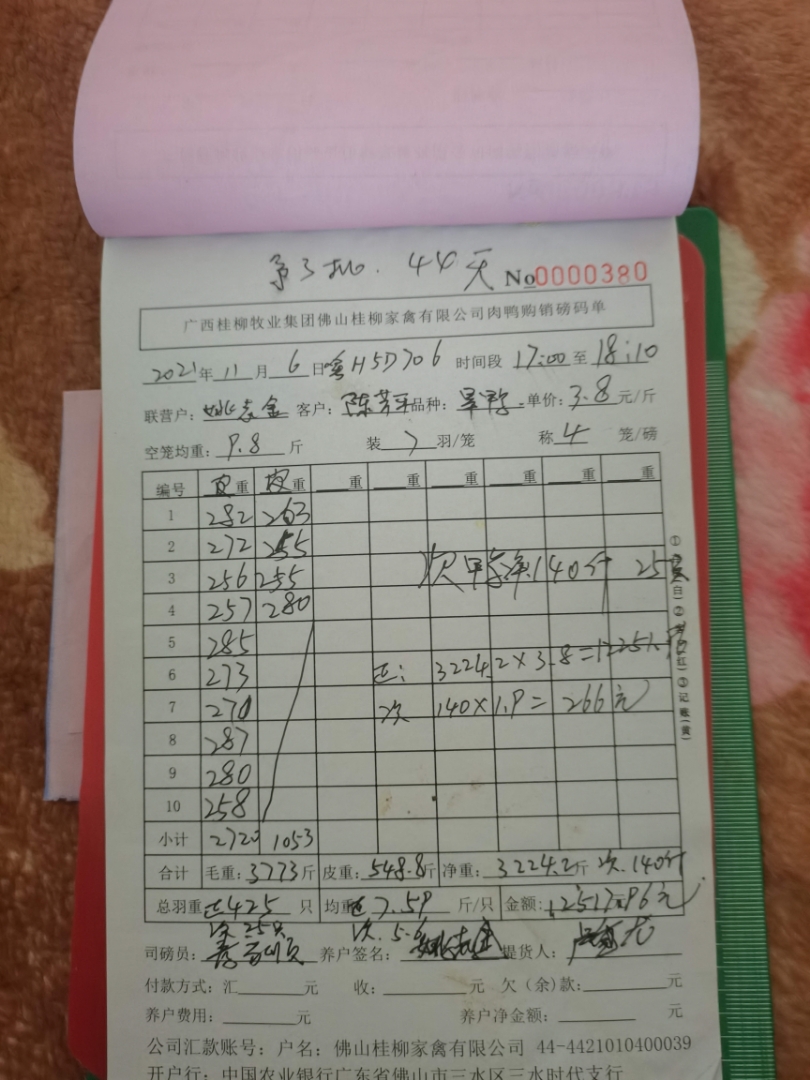 44天 No0000380
广西桂柳牧业集团佛山桂柳家禽有限公司肉鸭购销磅码单
2021年11月6日 H5D706 时间段17:00至18:10
联营户：姚志金 客户：陈芳平 品种： 单价：3.8元/斤
空笼均重：9.8斤 装7羽/笼 称4笼/磅
编号 重 重 重 重 重 重 重 重
1 282 263
2 272 255
3 256 255 次 净140斤 25
4 257 280
5 285
6 273 正：3224.2×3.8=1225
7 270 次 140×1.9=266元
8 287
9 280
10 258
小计 2720 1053
合计 毛重：3773斤 皮重：548.8斤 净重：3224.2斤 次.140斤
总羽重 正425只 均重 正7.59斤/只 金额：12517.96元
次25只 次.5.6
司磅员： 养户签名：姚志金 提货人：
付款方式：汇 元 收： 元 欠（余）款： 元
养户费用： 元 养户净金额： 元
公司汇款账号：户名：佛山桂柳家禽有限公司 44-4421010400039
开户行：中国农业银行广东省佛山市三水区三水时代支行
白）②
红）③记账（黄）